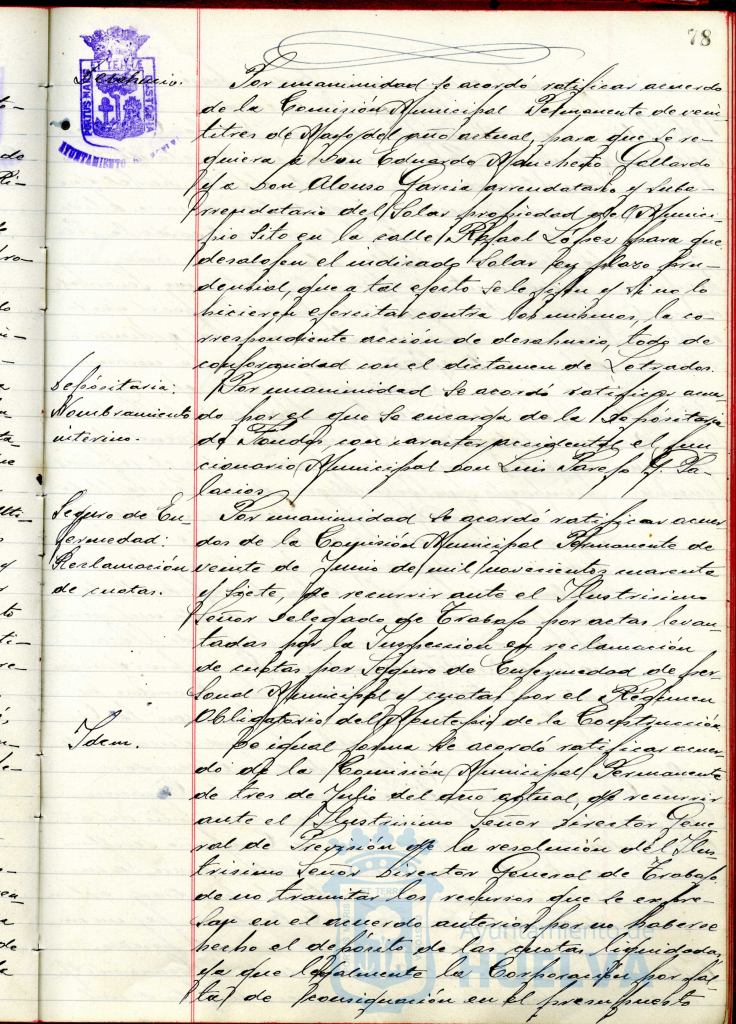 78
Desahucio.
Por unanimidad se acordó ratificar acuerdo
de la Comisión Municipal Permanente de vein
titres de Mayo del año actual, para que se re-
quiera a Don Eduardo Mancheño Gallardo
y a Don Alonso Garcia arrendatario y suba-
rrendatario del Solar propiedad del Munici-
pio sito en la calle Rafael López para que
desalojen el indicado Solar en plazo pru-
dencial, que a tal efecto se le fijen y si no lo
hicieren ejercitar contra los mismos, la co-
rrespondiente acción de desahucio, todo de
conformidad con el dictamen de Letrados.
Depósitaria:
Nombramiento
interino.
Por unanimidad se acordó ratificar acuer
do por el que se encarga de la Depósitaria
de Fondos con caracter accidental el fun
cionario Municipal don Luis Parejo G. Pa-
lacios
Seguro de En-
fermedad:
Reclamación
de cuotas.
Por unanimidad se acordó ratificar acuer
dos de la Comisión Municipal Permanente de
veinte de Junio de mil novecientos cuarenta
y siete, de recurrir ante el Ilustrisimo
Señor Delegado de Trabajo por actas levan-
tadas por la Inspeccion en reclamación
de cuotas por Seguro de Enfermedad de per
sonal Municipal y cuotas por el Régimen
Obligatorio del Montepio de la Construcción.
Idem.
De igual forma se acordó ratificar acuer
do de la Comisión Municipal Permanente
de tres de Julio del año actual, de recurrir
ante el Ilustrisimo Señor Director Gene
ral de Previsión de la resolución del Ilus
trisimo Señor Director General de Trabajo
de no tramitar los recursos que se expre-
san en el acuerdo anterior, por no haberse
hecho el depósito de las cuotas liquidadas
ya que legalmente la Corporación por fal
ta de consignación en el presupuesto
PORTUS MARIS ET TERRAE CUSTODIA
AYUNTAMIENTO DE
Ayuntamiento de
HUELVA